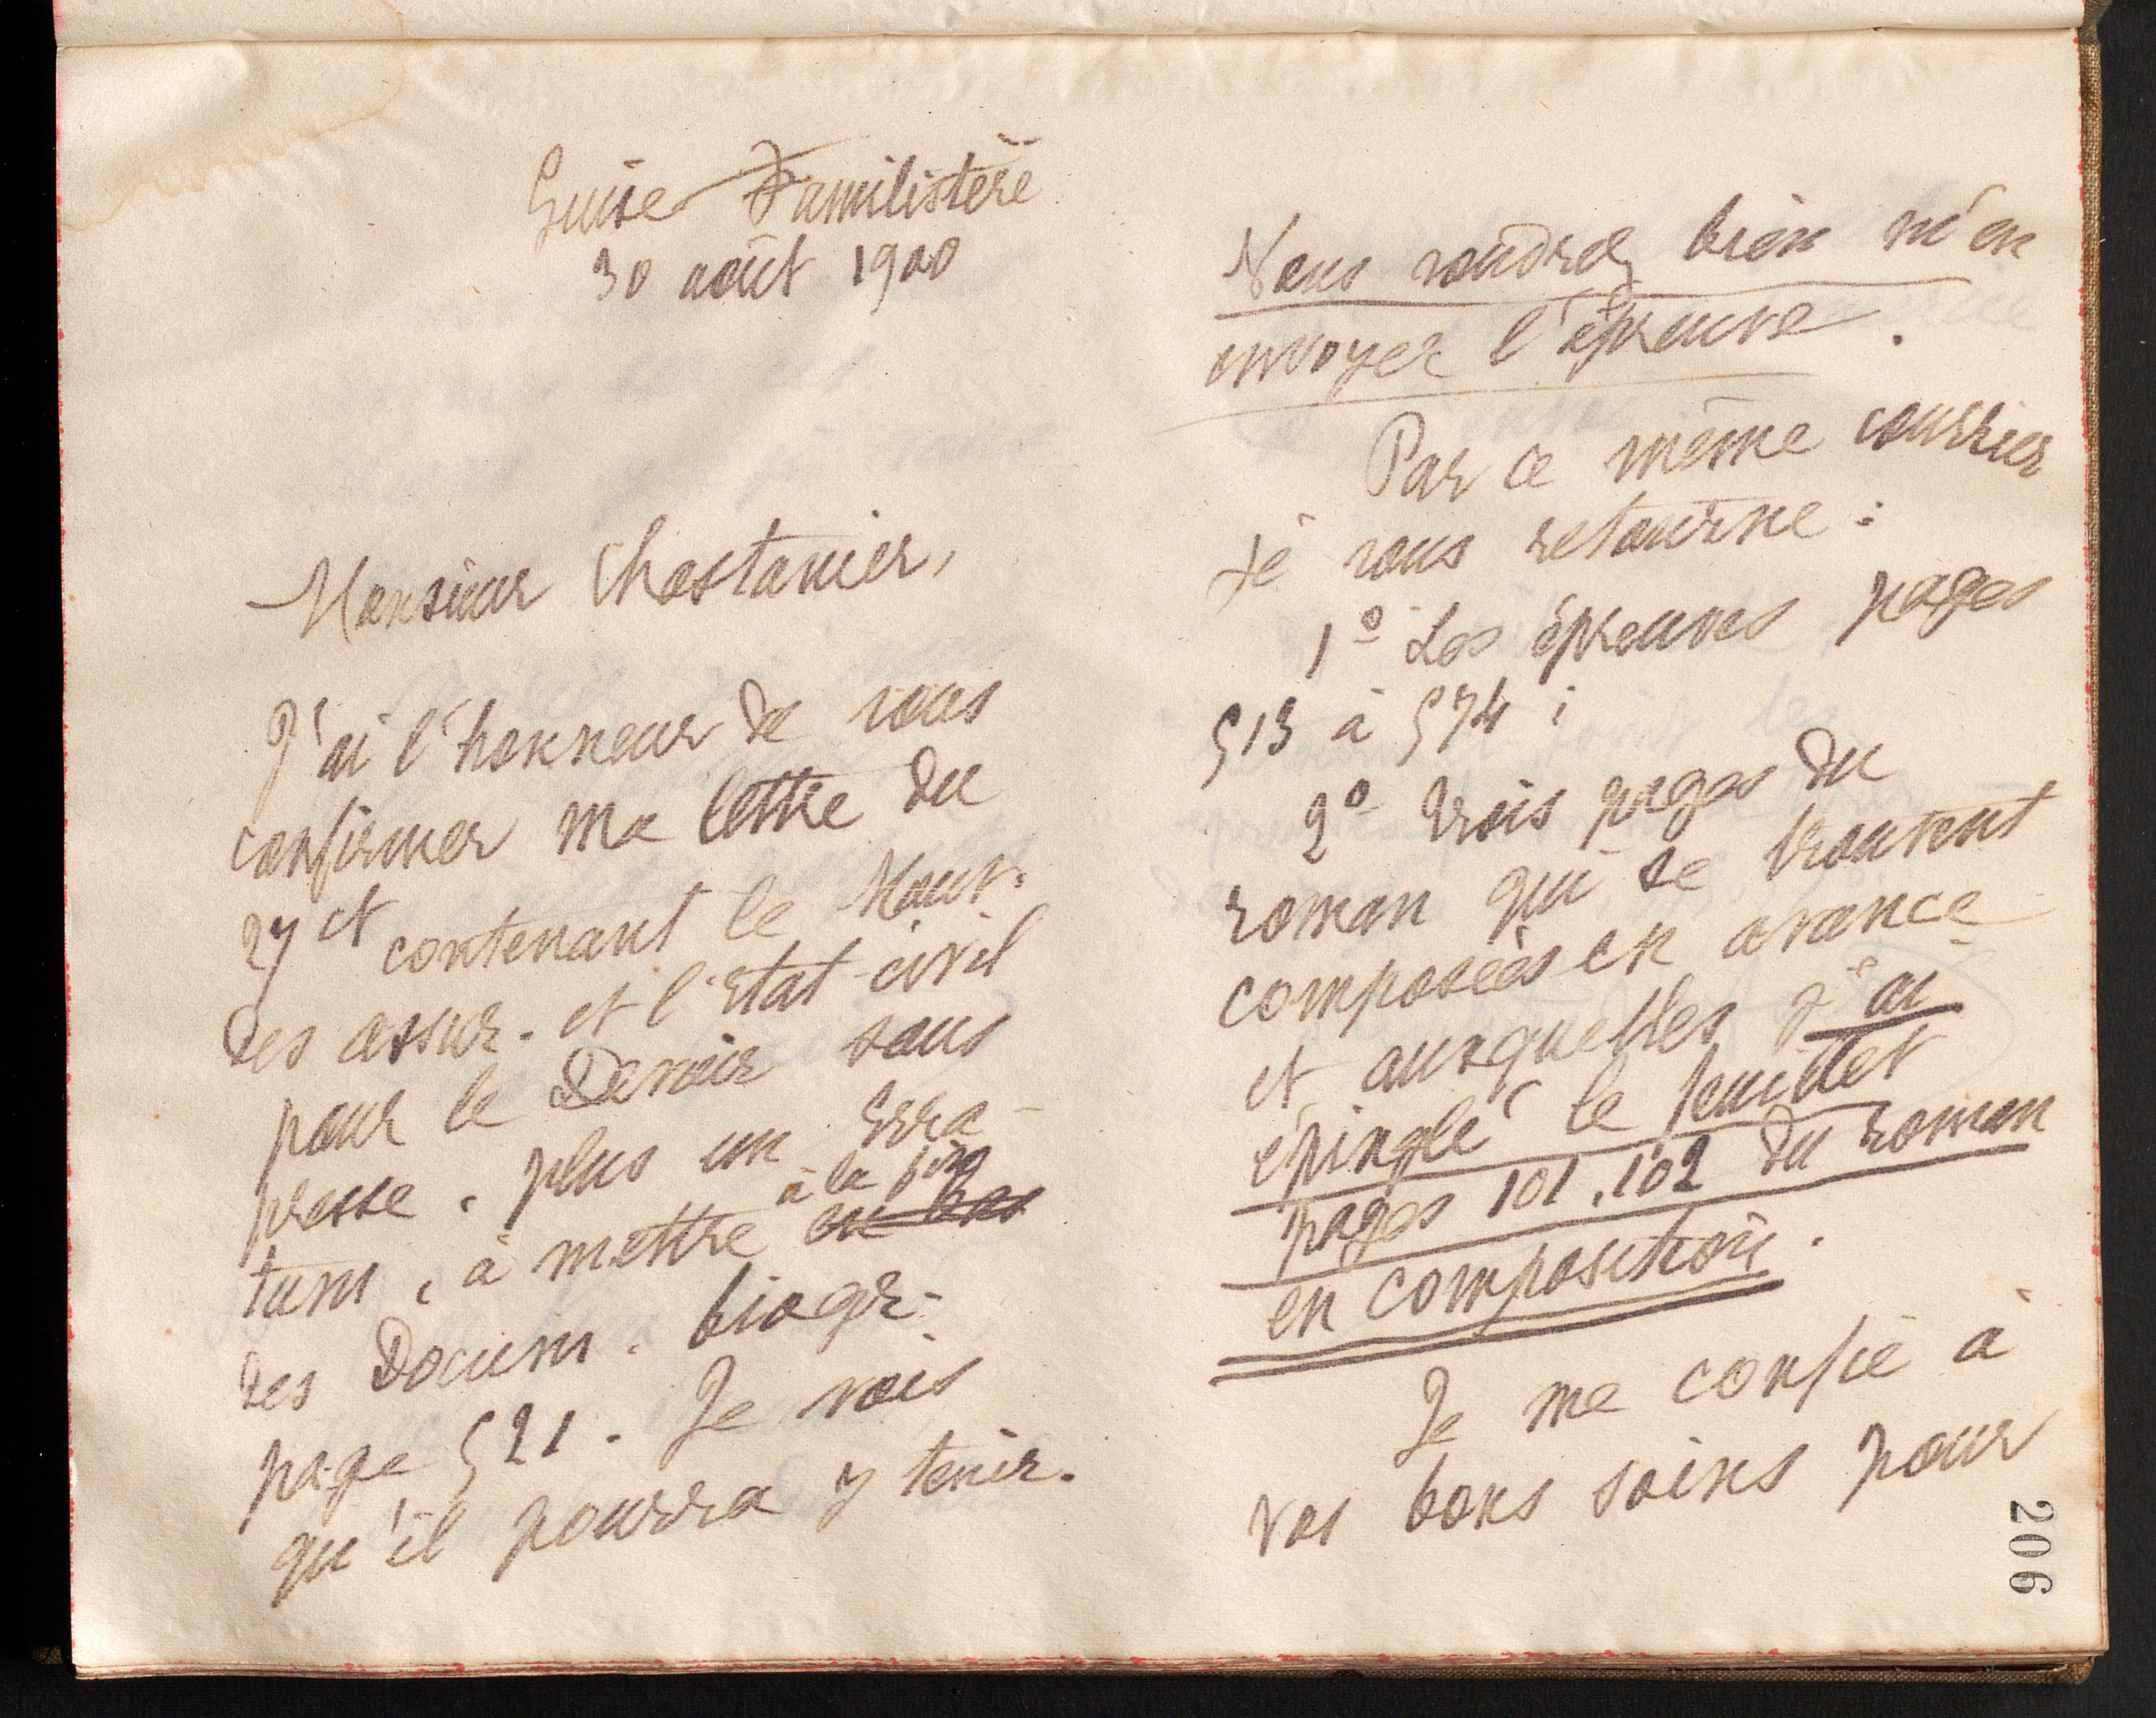 Guise Familistère
30 août 1900
Monsieur Chastanier,
J'ai l'honneur de vous
confirmer ma lettre du
27 ct contenant le Mouv.
des assur. et l'Etat-civil
pour le Devoir sous
presse. plus un Erra-
tum, à mettre à la fin au bas
des Docum. biogr.
page 521. Je vois
qu'il pourra y tenir.
Vous voudrez bien m'en
envoyer l'épreuve.
Par ce même courrier
je vous retourne :
1º Les épreuves pages
513 à 574 ;
2º Trois pages du
roman qui se trouvent
composées en avance
et auxquelles j'ai
épinglé le feuillet
pages 101.102 du roman
en composition.
Je me confie à
vos bons soins pour
206